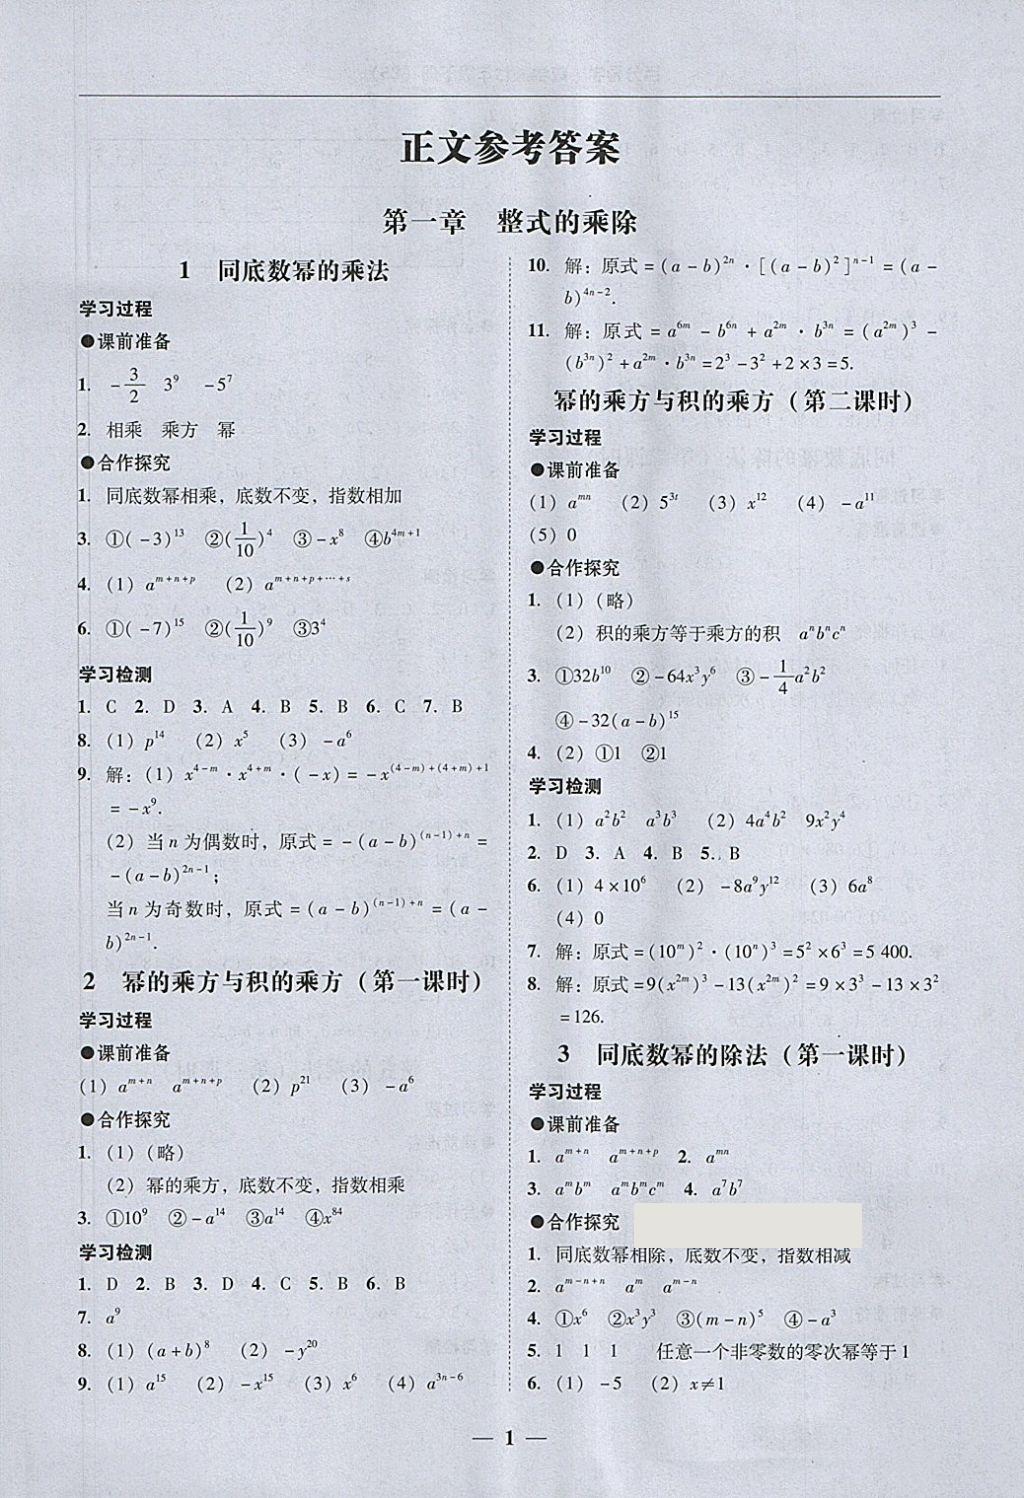 正文参考答案
第一章　整式的乘除
1　同底数幂的乘法
学习过程
●课前准备
1. $-\frac{3}{2}$　$3^{9}$　$-5^{7}$
2. 相乘　乘方　幂
●合作探究
1. 同底数幂相乘，底数不变，指数相加
3. ①$(-3)^{13}$　②$(\frac{1}{10})^{4}$　③$-x^{8}$　④$b^{4m+1}$
4. (1) $a^{m+n+p}$　(2) $a^{m+n+p+\cdots+s}$
6. ①$(-7)^{15}$　②$(\frac{1}{10})^{9}$　③$3^{4}$
学习检测
1. C　2. D　3. A　4. B　5. B　6. C　7. B
8. (1) $p^{14}$　(2) $x^{5}$　(3) $-a^{6}$
9. 解：(1) $x^{4-m}·x^{4+m}·(-x)=-x^{(4-m)+(4+m)+1}$
$=-x^{9}$.
(2) 当 n 为偶数时，原式$=-(a-b)^{(n-1)+n}=$
$-(a-b)^{2n-1}$；
当 n 为奇数时，原式$=(a-b)^{(n-1)+n}=(a-$
$b)^{2n-1}$.
2　幂的乘方与积的乘方（第一课时）
学习过程
●课前准备
(1) $a^{m+n}$　$a^{m+n+p}$　(2) $p^{21}$　(3) $-a^{6}$
●合作探究
1. (1)（略）
(2) 幂的乘方，底数不变，指数相乘
3. ①$10^{9}$　②$-a^{14}$　③$a^{14}$　④$x^{84}$
学习检测
1. D　2. B　3. D　4. C　5. B　6. B
7. $a^{9}$
8. (1) $(a+b)^{8}$　(2) $-y^{20}$
9. (1) $a^{15}$　(2) $-x^{15}$　(3) $x^{6}$　(4) $a^{3n-6}$
10. 解：原式$=(a-b)^{2n}·[(a-b)^{2}]^{n-1}=(a-$
$b)^{4n-2}$.
11. 解：原式$=a^{6m}-b^{6n}+a^{2m}·b^{3n}=(a^{2m})^{3}-$
$(b^{3n})^{2}+a^{2m}·b^{3n}=2^{3}-3^{2}+2×3=5$.
幂的乘方与积的乘方（第二课时）
学习过程
●课前准备
(1) $a^{mn}$　(2) $5^{3t}$　(3) $x^{12}$　(4) $-a^{11}$
(5) 0
●合作探究
1. (1)（略）
(2) 积的乘方等于乘方的积　$a^{n}b^{n}c^{n}$
3. ①$32b^{10}$　②$-64x^{3}y^{6}$　③$-\frac{1}{4}a^{2}b^{2}$
④$-32(a-b)^{15}$
4. (2) ①1　②1
学习检测
1. (1) $a^{2}b^{2}$　$a^{3}b^{3}$　(2) $4a^{4}b^{2}$　$9x^{2}y^{4}$
2. D　3. A　4. B　5. B
6. (1) $4×10^{6}$　(2) $-8a^{9}y^{12}$　(3) $6a^{8}$
(4) 0
7. 解：原式$=(10^{m})^{2}·(10^{n})^{3}=5^{2}×6^{3}=5 400$.
8. 解：原式$=9(x^{2m})^{3}-13(x^{2m})^{2}=9×3^{3}-13×3^{2}$
$=126$.
3　同底数幂的除法（第一课时）
学习过程
●课前准备
1. $a^{m+n}$　$a^{m+n+p}$　2. $a^{mn}$
3. $a^{m}b^{m}$　$a^{m}b^{m}c^{m}$　4. $a^{7}b^{7}$
●合作探究
1. 同底数幂相除，底数不变，指数相减
2. $a^{m-n+n}$　$a^{m}$　$a^{m-n}$
4. ①$x^{6}$　②$x^{3}y^{3}$　③$(m-n)^{5}$　④$-a^{3}$
5. 1　1　1　任意一个非零数的零次幂等于 1
6. (1) $-5$　(2) $x≠1$
— 1 —